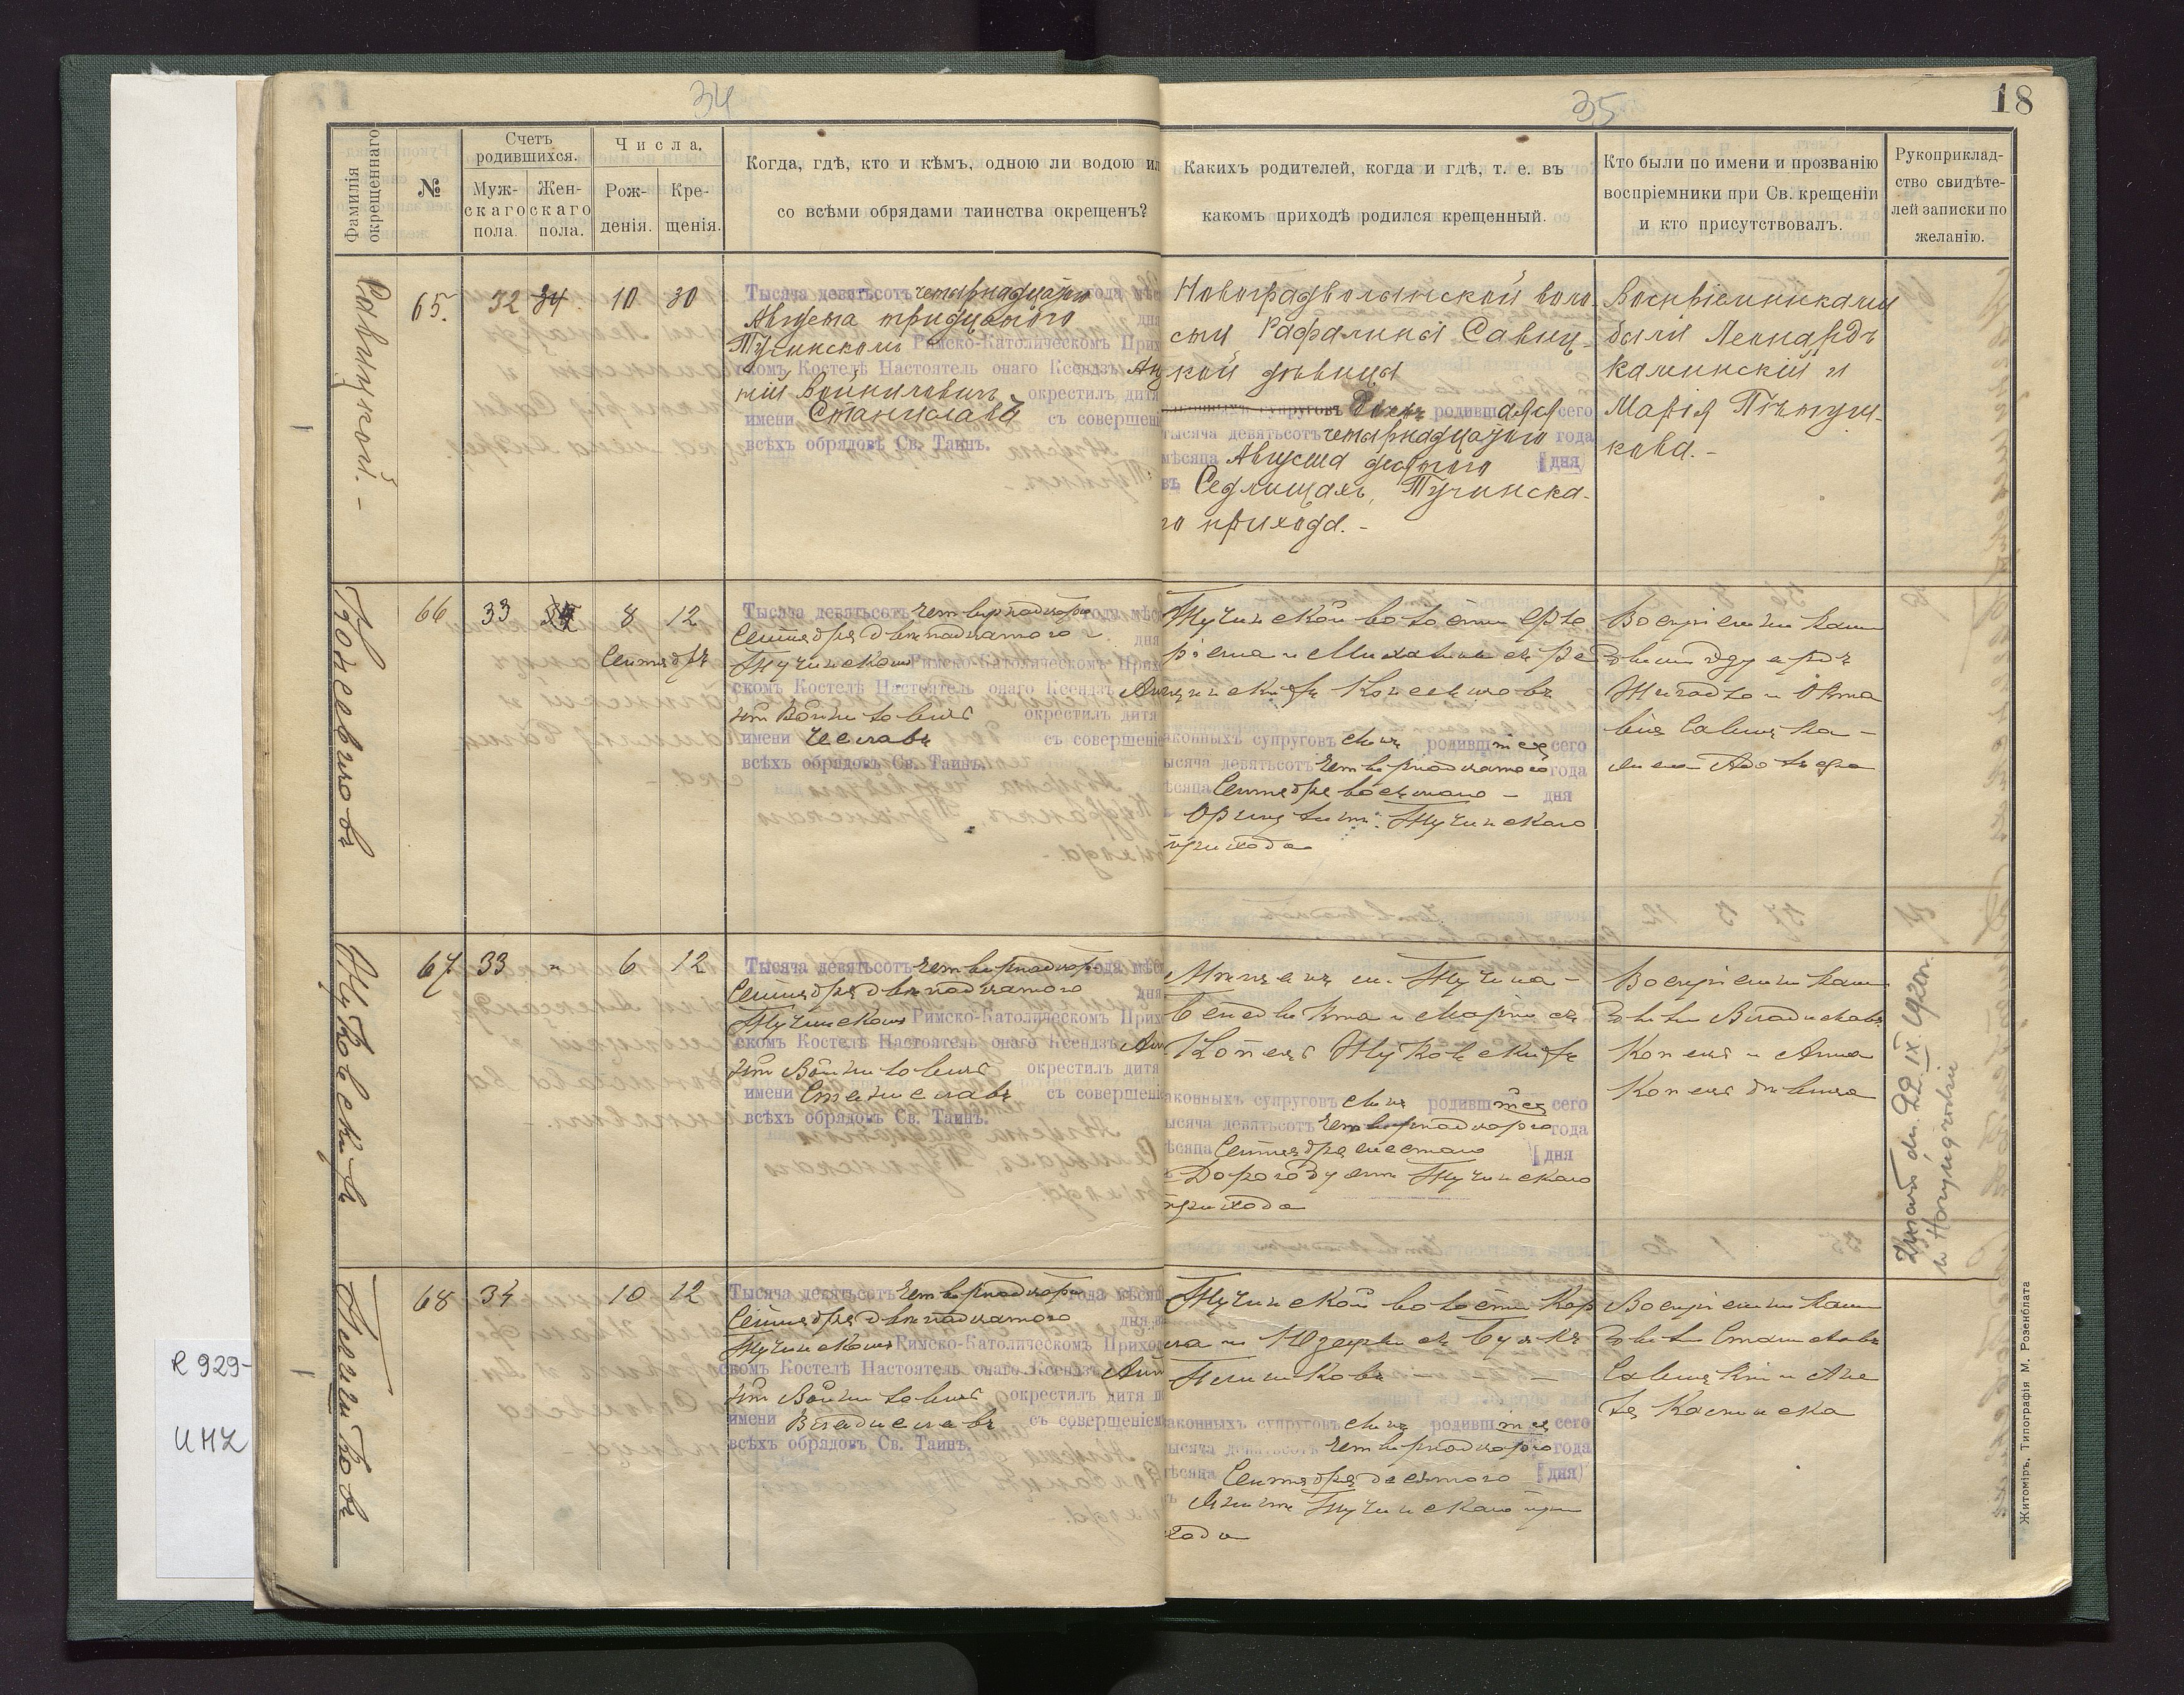 34
35
18
Фамилія окрещеннаго
№
Счетъ родившихся.
Мужскаго пола.
Женскаго пола.
Числа.
Рожденія.
Крещенія.
Когда, гдѣ, кто и кѣмъ, одною ли водою ил
со всѣми обрядами таинства окрещенъ?
Какихъ родителей, когда и гдѣ, т. е. въ
какомъ приходѣ родился крещенный.
Кто были по имени и прозванію
воспріемники при Св. крещеніи
и кто присутствовалъ.
Рукоприклад-
ство свидѣте-
лей записки по
желанію.
Савицкой. -
65. 32 34 10 30
Тысяча девятьсотъ четырнадцатаго года мѣс
Августа тридцатаго дня
Тучинскомъ Римско-Католическомъ Прих
скомъ Костелѣ Настоятель онаго Ксендзъ Ан
тній Войниловичъ окрестилъ дитя
имени Станиславъ съ совершені
всѣхъ обрядовъ Св. Таинъ.
Новоградволынской воло-
сти Рафалины Савиц-
кой дѣвицы
законныхъ супруговъ родившаяся сего
тысяча девятьсотъ четырнадцатаго года
мѣсяца Августа десятаго дня
въ Седлищахъ, Тучинска-
го прихода. -
Воспріемниками
были Леонардъ
Каминскій и
Марія Пѣтуш-
кова. -
66 33 8 12
Сентябрь
Тысяча девятьсотъ четырнадцатаго года мѣс
Сентября двѣнадцатаго дня
Тучинскомъ Римско-Католическомъ Прих
скомъ Костелѣ Настоятель онаго Ксендзъ Ан
тній Войниловичъ окрестилъ дитя
имени Чеславъ съ совершені
всѣхъ обрядовъ Св. Таинъ.
Тучинской волости Фло
ріана и Михалины съ Ре
законныхъ супруговъ сынъ родившійся сего
тысяча девятьсотъ четырнадцатаго года
мѣсяца Сентября восьмаго - дня
Тучинскаго
прихода
Воспріемниками
были Эдуардъ
и Окта
вія Савицка -
Жуковскихъ
67 33 " 6 12
Тысяча девятьсотъ четырнадцатаго года мѣс
Сентября двѣнадцатаго дня
Тучинскомъ Римско-Католическомъ Прих
скомъ Костелѣ Настоятель онаго Ксендзъ Ан
тній Войниловичъ окрестилъ дитя
имени Станиславъ съ совершені
всѣхъ обрядовъ Св. Таинъ.
Мѣщанъ м. Тучина -
Бенедикта и Маріи съ
Копечъ Жуковскихъ
законныхъ супруговъ сынъ родившійся сего
тысяча девятьсотъ четырнадцатаго года
мѣсяца Сентября шестаго дня
Дорогобужѣ Тучинскаго
прихода
Воспріемниками
были Владиславъ
Копечъ и Анна
Копечъ дѣвица
Zmarł dn. 22. IX. 1920 r.
w Horyńgrodzie
Пелишковъ
68 34 10 12
Тысяча девятьсотъ четырнадцатаго года мѣсяц
Сентября двѣнадцатаго дня
Тучинскомъ Римско-Католическомъ Приход
скомъ Костелѣ Настоятель онаго Ксендзъ Ант
ній Войниловичъ окрестилъ дитя
имени Владиславъ съ совершеніем
всѣхъ обрядовъ Св. Таинъ.
Тучинской волости Кар
ла и Юзефы съ
законныхъ супруговъ сынъ родившійся сего
тысяча девятьсотъ четырнадцатаго года
мѣсяца Сентября десятаго дня
Тучинскаго при
хода
Воспріемниками
были Станиславъ
Савицкій и Анѣ
ля
Житоміръ, Типографія М. Розенблата
R 929-
UMZ